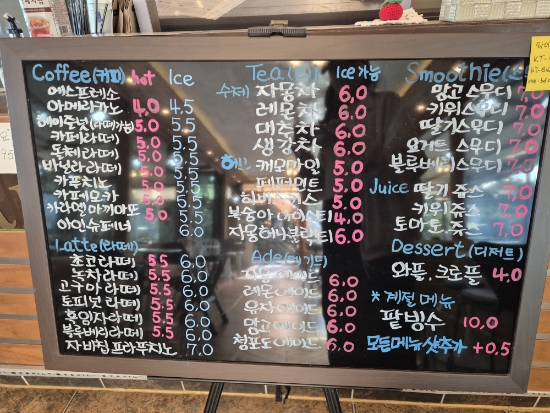 Coffee(커피) hot Ice
에스프레소
아메리카노 4.0 4.5
헤이즈넛(라떼가능) 5.0 5.5
카페라떼 5.0 5.5
돌체라떼 5.0 5.5
바닐라라떼 5.0 5.5
카푸치노 5.0 5.5
카페모카 5.0 5.5
카라멜마끼아또 5.0 5.5
아인슈페너 6.0
Latte(라떼)
초코라떼 5.5 6.0
녹차라떼 5.5 6.0
고구마라떼 5.5 6.0
토피넛라떼 5.5 6.0
흑임자라떼 5.5 6.0
블루베리라떼 5.5 6.0
자바칩프라푸치노 7.0
Tea(티) Ice가능
수제 자몽차 6.0
레몬차 6.0
대추차 6.0
생강차 6.0
캐모마일 5.0
페퍼민트 5.0
5.0
복숭아아이스티 4.0
자몽허니블랙티 6.0
Ade(에이드)
자몽에이드 6.0
레몬에이드 6.0
유자에이드 6.0
망고에이드 6.0
청포도에이드 6.0
Smoothie
망고스무디 7.0
키위스무디 7.0
딸기스무디 7.0
요거트스무디 7.0
블루베리스무디 7.0
Juice 딸기쥬스 7.0
키위쥬스 7.0
토마토쥬스 7.0
Dessert(디저트)
와플, 크로플 4.0
*계절메뉴
팥빙수 10.0
모든메뉴샷추가 +0.5